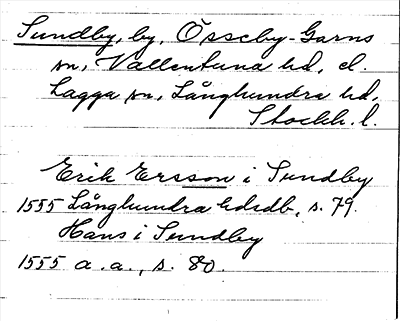 Sundby, by, Össeby-Garns
sn, Vallentuna hd, el.
Lagga sn, Långhundra hd,
Stockh. l.
Erik Ersson i Sundby
1555 Långhundra hdsdb, s. 79.
Hans i Sundby
1555 a. a., s. 80.